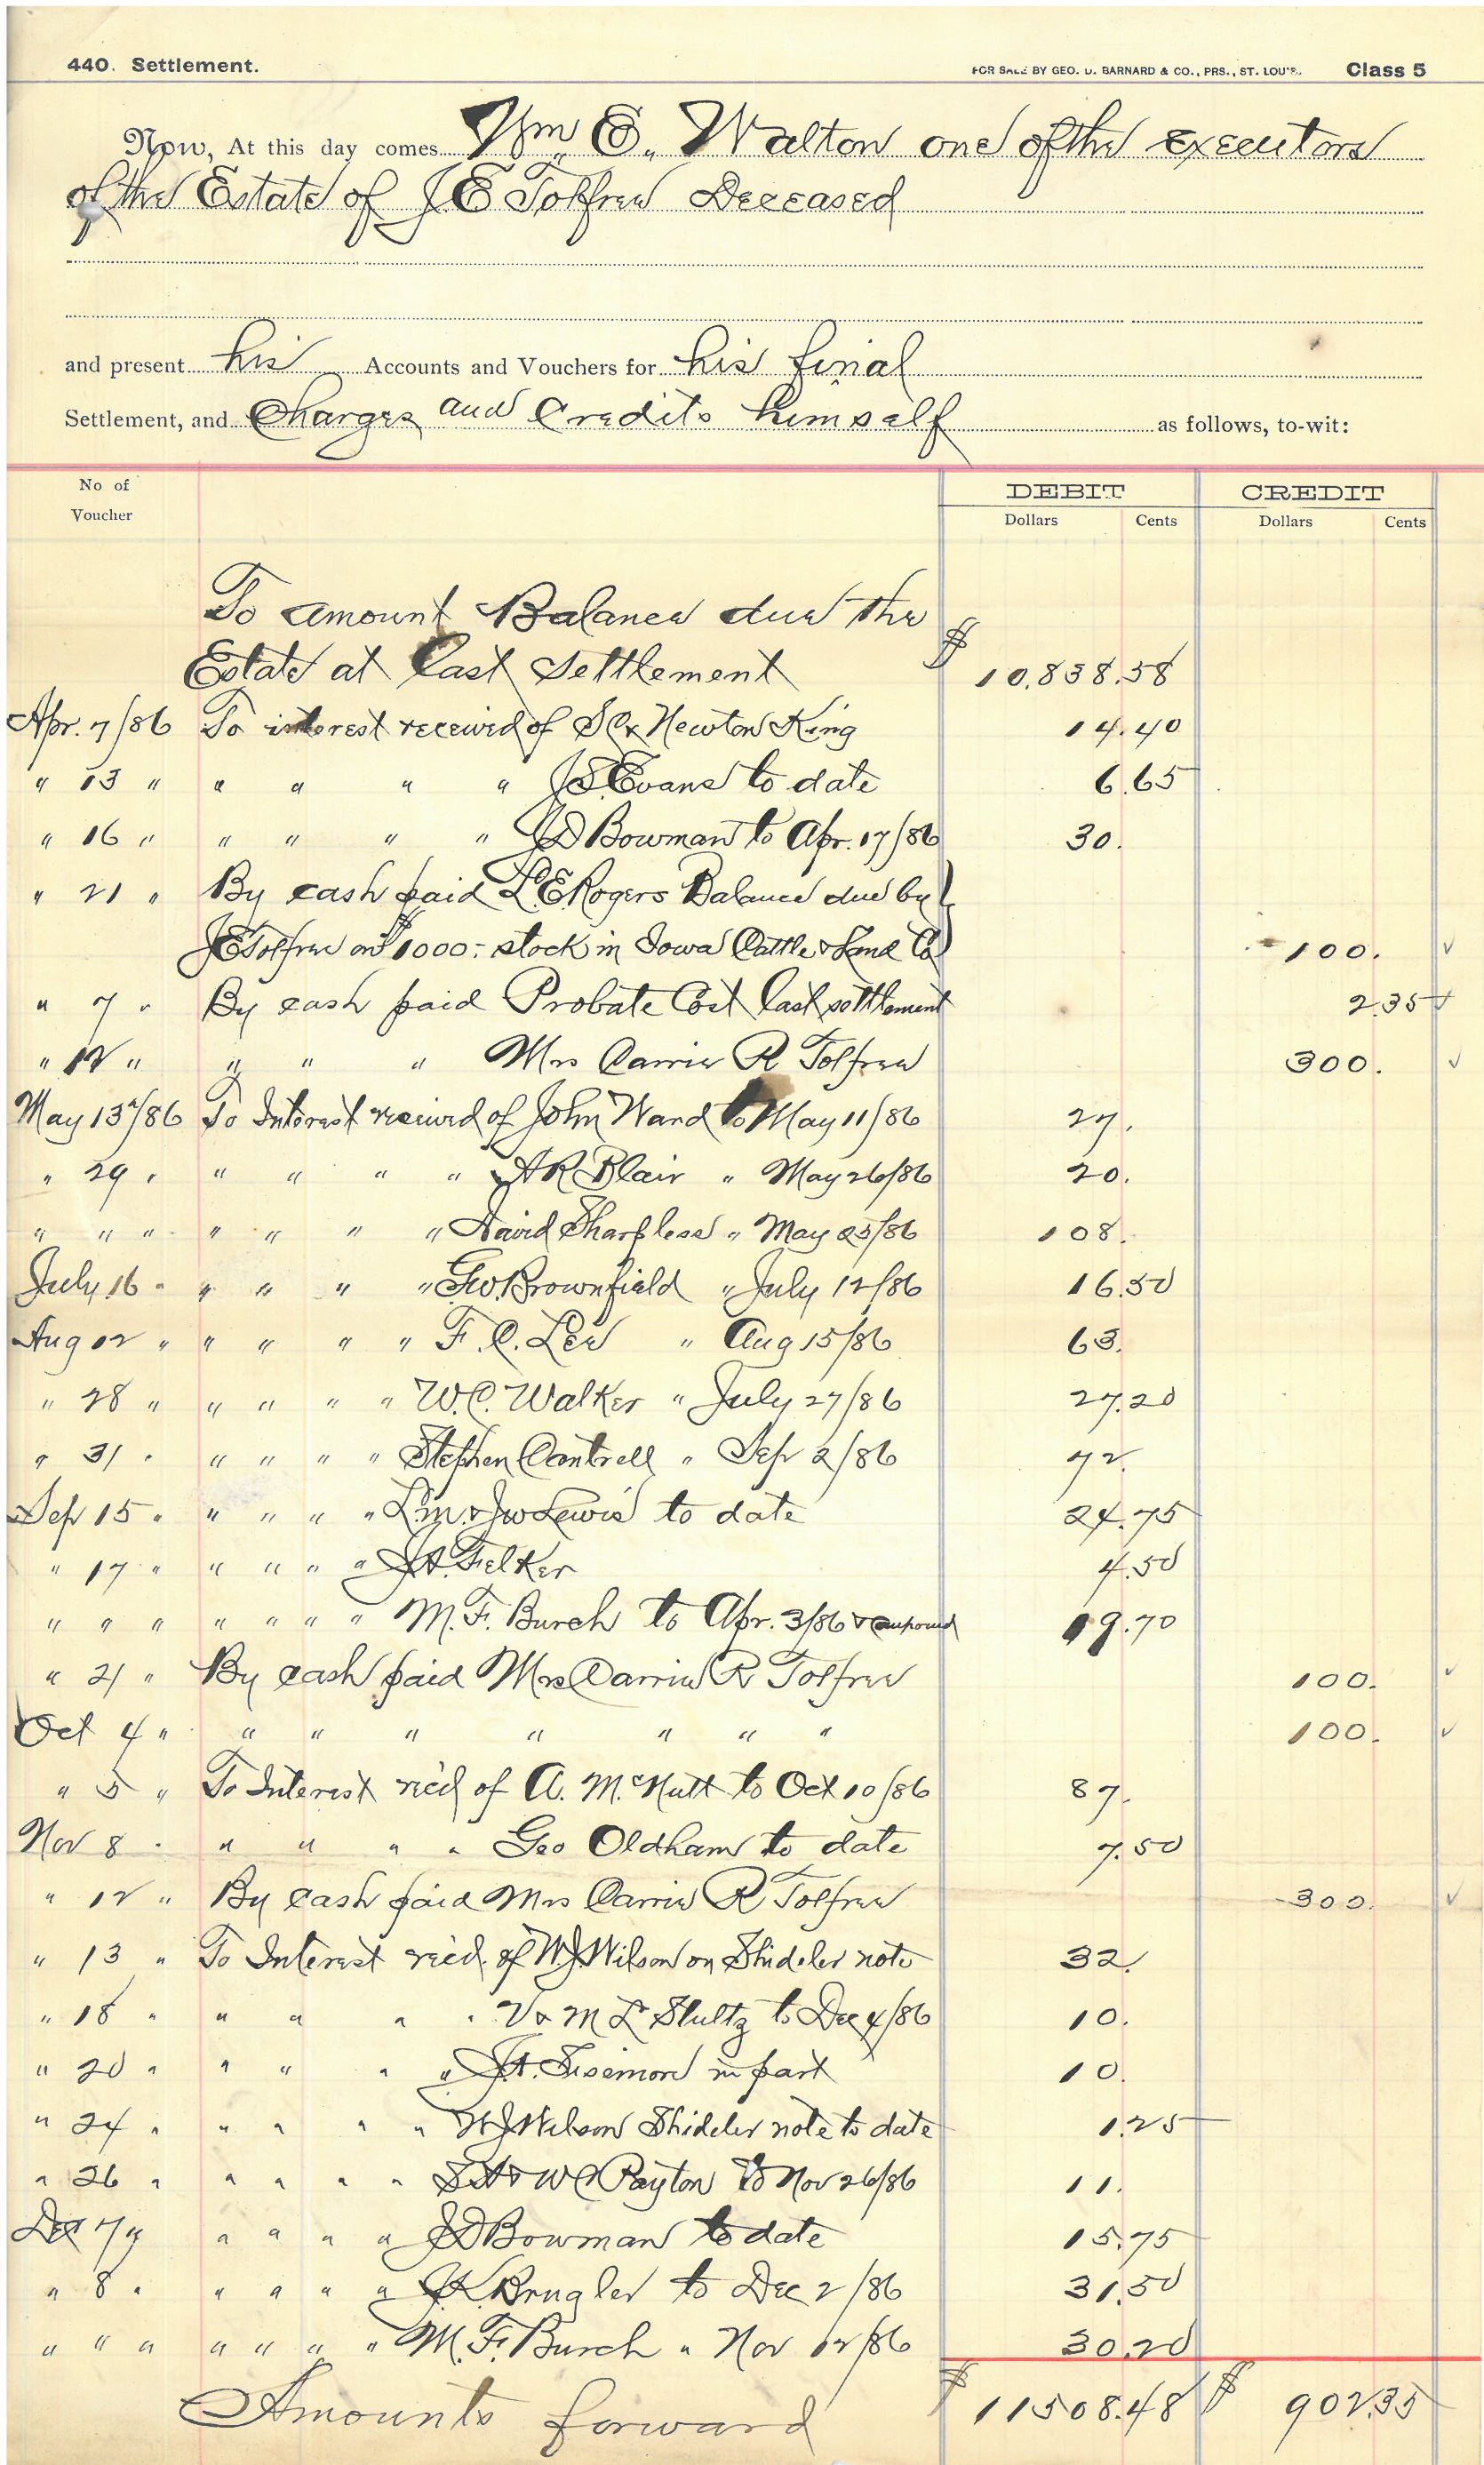 440. Settlement. FOR SALE BY GEO. D. BARNARD & CO., PRS., ST. LOUIS. Class 5
Now, At this day comes Wm E. Walton one of the Executors
of the Estate of J E Tolfree Deceased
and present his Accounts and Vouchers for his final
Settlement, and Charges and Credits himself as follows, to-wit:
No of Voucher DEBIT CREDIT
Dollars Cents Dollars Cents
To amount Balance due the
Estate at last Settlement $ 10,838.58
Apr. 7/86 To interest received of S C & Newton King 14.40
" 13 " " " " " J S Evans to date 6.65
" 16 " " " " " J D Bowman to Apr. 17/86 30.
" 21 " By cash paid L E Rogers Balance due by
J E Tolfree on $1000:- stock in Iowa Cattle & Land Co 100. ✓
" 7 " By cash paid Probate Cost last settlement 2.35 ✓
" 12 " " " " Mrs Carrie R Tolfree 300. ✓
May 13"/86 To Interest received of John Ward to May 11/86 27.
" 29 " " " " " A R Blair " May 26/86 20.
" " " " " " " David Sharpless " May 25/86 108.
July 16 " " " " " Geo. Brownfield " July 12/86 16.50
Aug 02 " " " " " F. C. Lee " Aug 15/86 63.
" 28 " " " " " W. C. Walker " July 27/86 27.20
" 31 " " " " " Stephen Cantrell " Sep 2/86 72.
Sep 15 " " " " " L M & J W Lewis to date 24.75
" 17 " " " " " J H Felker 4.50
" " " " " " " M. F. Burch to Apr. 3/86 & compound 19.70
" 21 " By cash paid Mrs Carrie R Tolfree 100. ✓
Oct 4 " " " " " " " " 100. ✓
" 5 " To Interest rec'd of A. McNutt to Oct 10/86 87.
Nov 8 " " " " " Geo Oldham to date 7.50
" 12 " By cash paid Mrs Carrie R Tolfree 300. ✓
" 13 " To Interest rec'd. of W J Wilson on Shideler note 32.
" 18 " " " " " V & M L Stultz to Dec 4/86 10.
" 20 " " " " " J H. Sisemore in part 10.
" 24 " " " " " W J Wilson Shideler note to date 1.25
" 26 " " " " " & W C Payton to Nov 26/86 11.
Dec 7 " " " " " J D Bowman to date 15.75
" 8 " " " " " J K Brugler to Dec 2/86 31.50
" " " " " " " M. F. Burch " Nov 12/86 30.20
Amounts forward $ 11508.48 $ 902.35